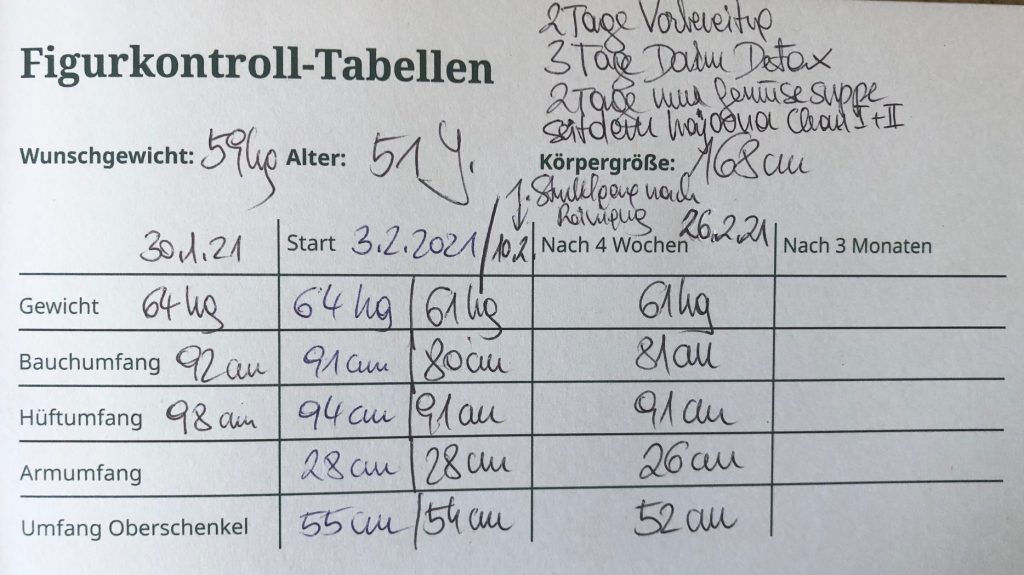 2 Tage Vorbereitung
3 Tage Darm Detox
Figurkontroll-Tabellen
2 Tage nur Gemüsesuppe
seitdem Clean I+II
Wunschgewicht: 59kg Alter: 51 J. Körpergröße: 168 cm
1. Stuhlgang nach
Reinigung
30.1.21 Start 3.2.2021 / 10.2. Nach 4 Wochen 26.2.21 Nach 3 Monaten
Gewicht 64 kg 64 kg 61 kg 61 kg
Bauchumfang 92 cm 91 cm 80 cm 81 cm
Hüftumfang 98 cm 94 cm 91 cm 91 cm
Armumfang 28 cm 28 cm 26 cm
Umfang Oberschenkel 55 cm 54 cm 52 cm